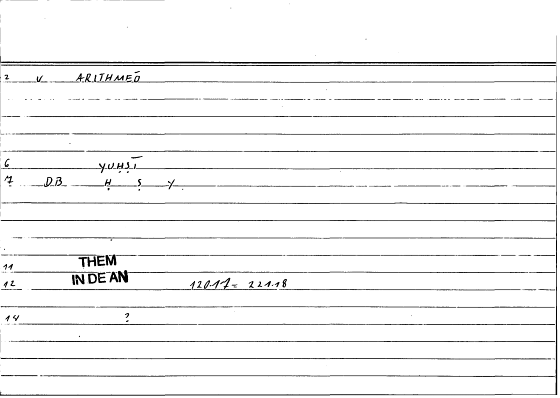 2 V ARITHMEŌ
6 YUḤṢĪ
7 DB Ḥ Ṣ Y
11 THEM
12 IN DE AN 12017= 221.18
14 ?